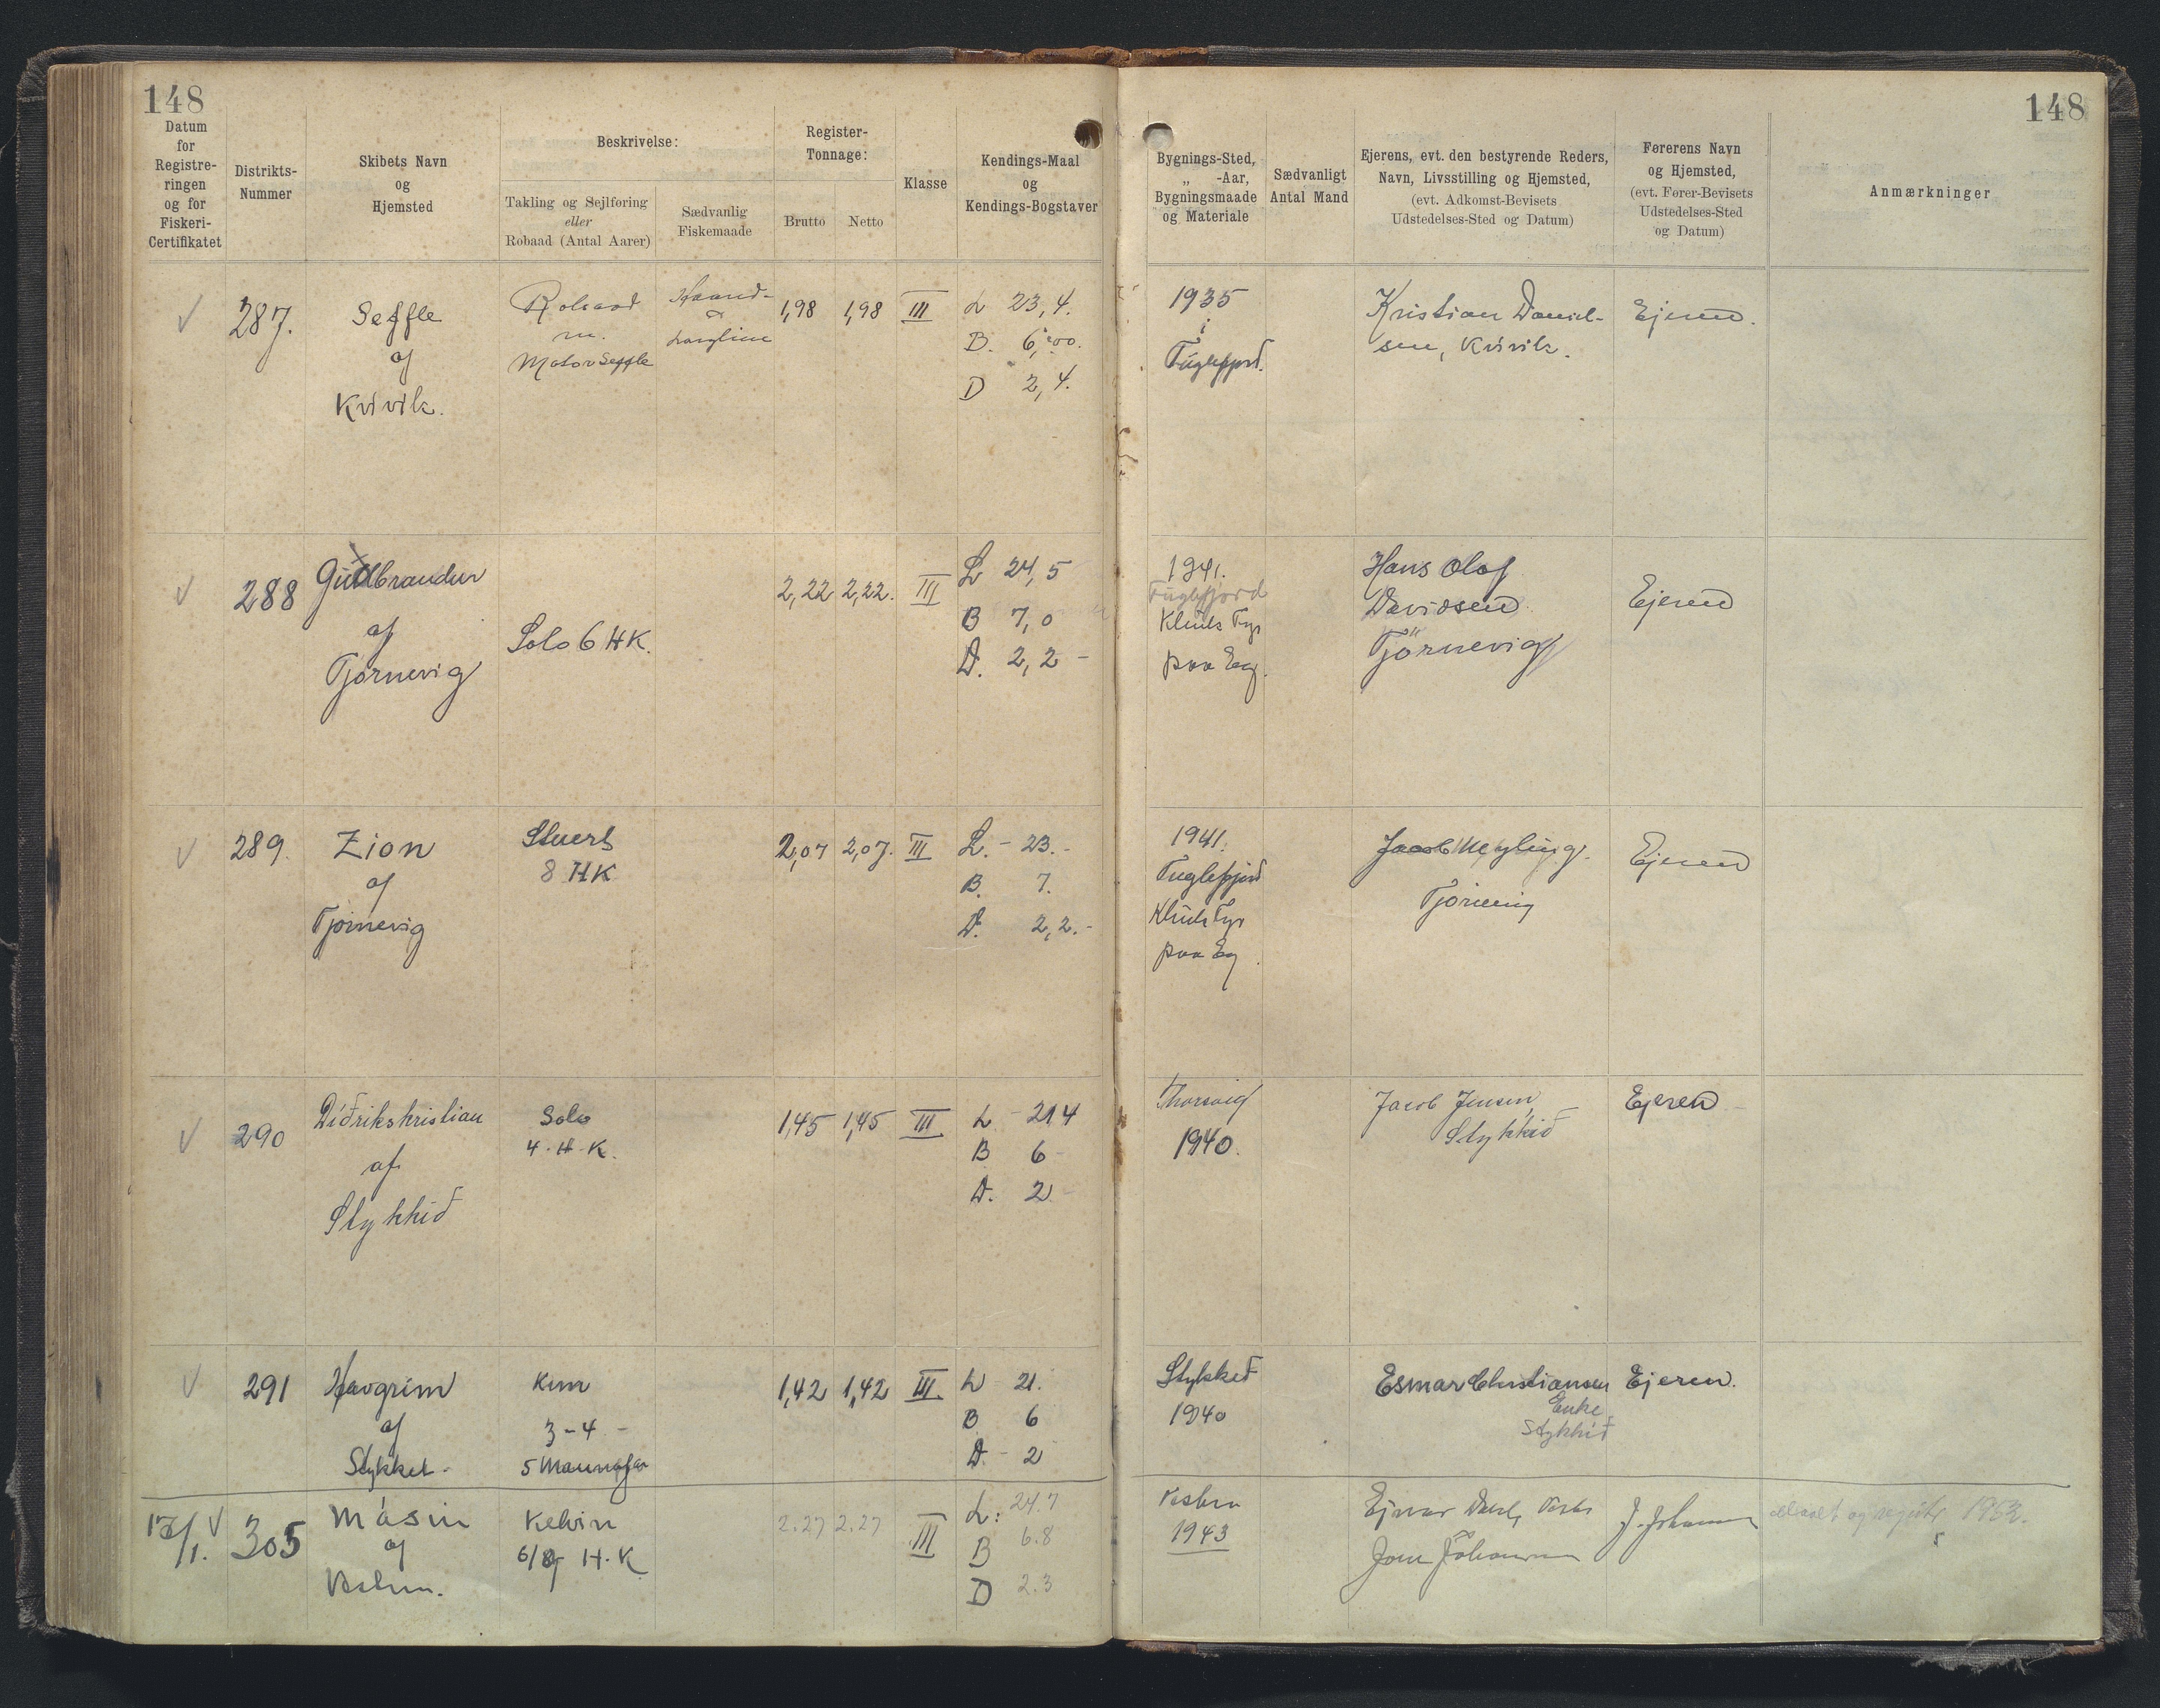 148
148
Datum
for
Registre-
ringen
og for
Fiskeri-
Certifikatet
Distrikts-
Nummer
Skibets Navn
og
Hjemsted
Beskrivelse:
Takling og Sejlføring
eller
Robaad (Antal Aarer)
Sædvanlig
Fiskemaade
Register-
Tonnage:
Brutto Netto
Klasse
Kendings-Maal
og
Kendings-Bogstaver
Bygnings-Sted,
„ -Aar,
Bygningsmaade
og Materiale
Sædvanligt
Antal Mand
Ejerens, evt. den bestyrende Reders,
Navn, Livsstilling og Hjemsted,
(evt. Adkomst-Bevisets
Udstedelses-Sted og Datum)
Førerens Navn
og Hjemsted,
(evt. Fører-Bevisets
Udstedelses-Sted
og Datum)
Anmærkninger
287.
Seffle
af
Kvivik.
Robaad
m.
Motor Seffle
Haand-
&
Langline
1,98 1,98 III
L 23,4.
B. 6,00.
D 2,4.
1935
i
Fuglefjord.
Kristian Daniel-
sen, Kvivik.
Ejeren.
288
Gudbrandur
af
Tjørnevig
Solo 6 HK.
2,22 2,22. III
L 24,5
B 7,0
D. 2,2 -
1941.
Fuglefjord
Klink Fyr
paa Eg.
Hans Olof
Davidsen
Tjörnevig
Ejeren
289.
Zion
af
Tjørnevig
Stuert
8 HK
2,07 2,07. III
L. - 23.-
B. 7.
D. 2,2.-
1941.
Fuglefjord
Klink Fyr
paa Eg.
Jacob Meyling.
Tjørnevig
Ejeren
290
Didrikskristian
af
Stykkid
Solo
4. H. K.
1,45 1,45 III
L - 21,4
B 6 -
D. 2 -
Thorsvig
1940.
Jacob Jensen
Stykkid
Ejeren
291
Havgrim
af
Stykket -
Kum
3-4 -
5 Mannafar
1,42 1,42 III.
L 21.
B 6
D. - 2
Stykket
1940
Esmar Christiansen
Enke
Stykkid
Ejeren.
305
Másin
af
Vestm.
Kelvin
6/8 H.K
2.27 2.27 III
L: 24.7
B 6.8
D 2.3
1943
Ejnar
J. Johannesen
og 1953.